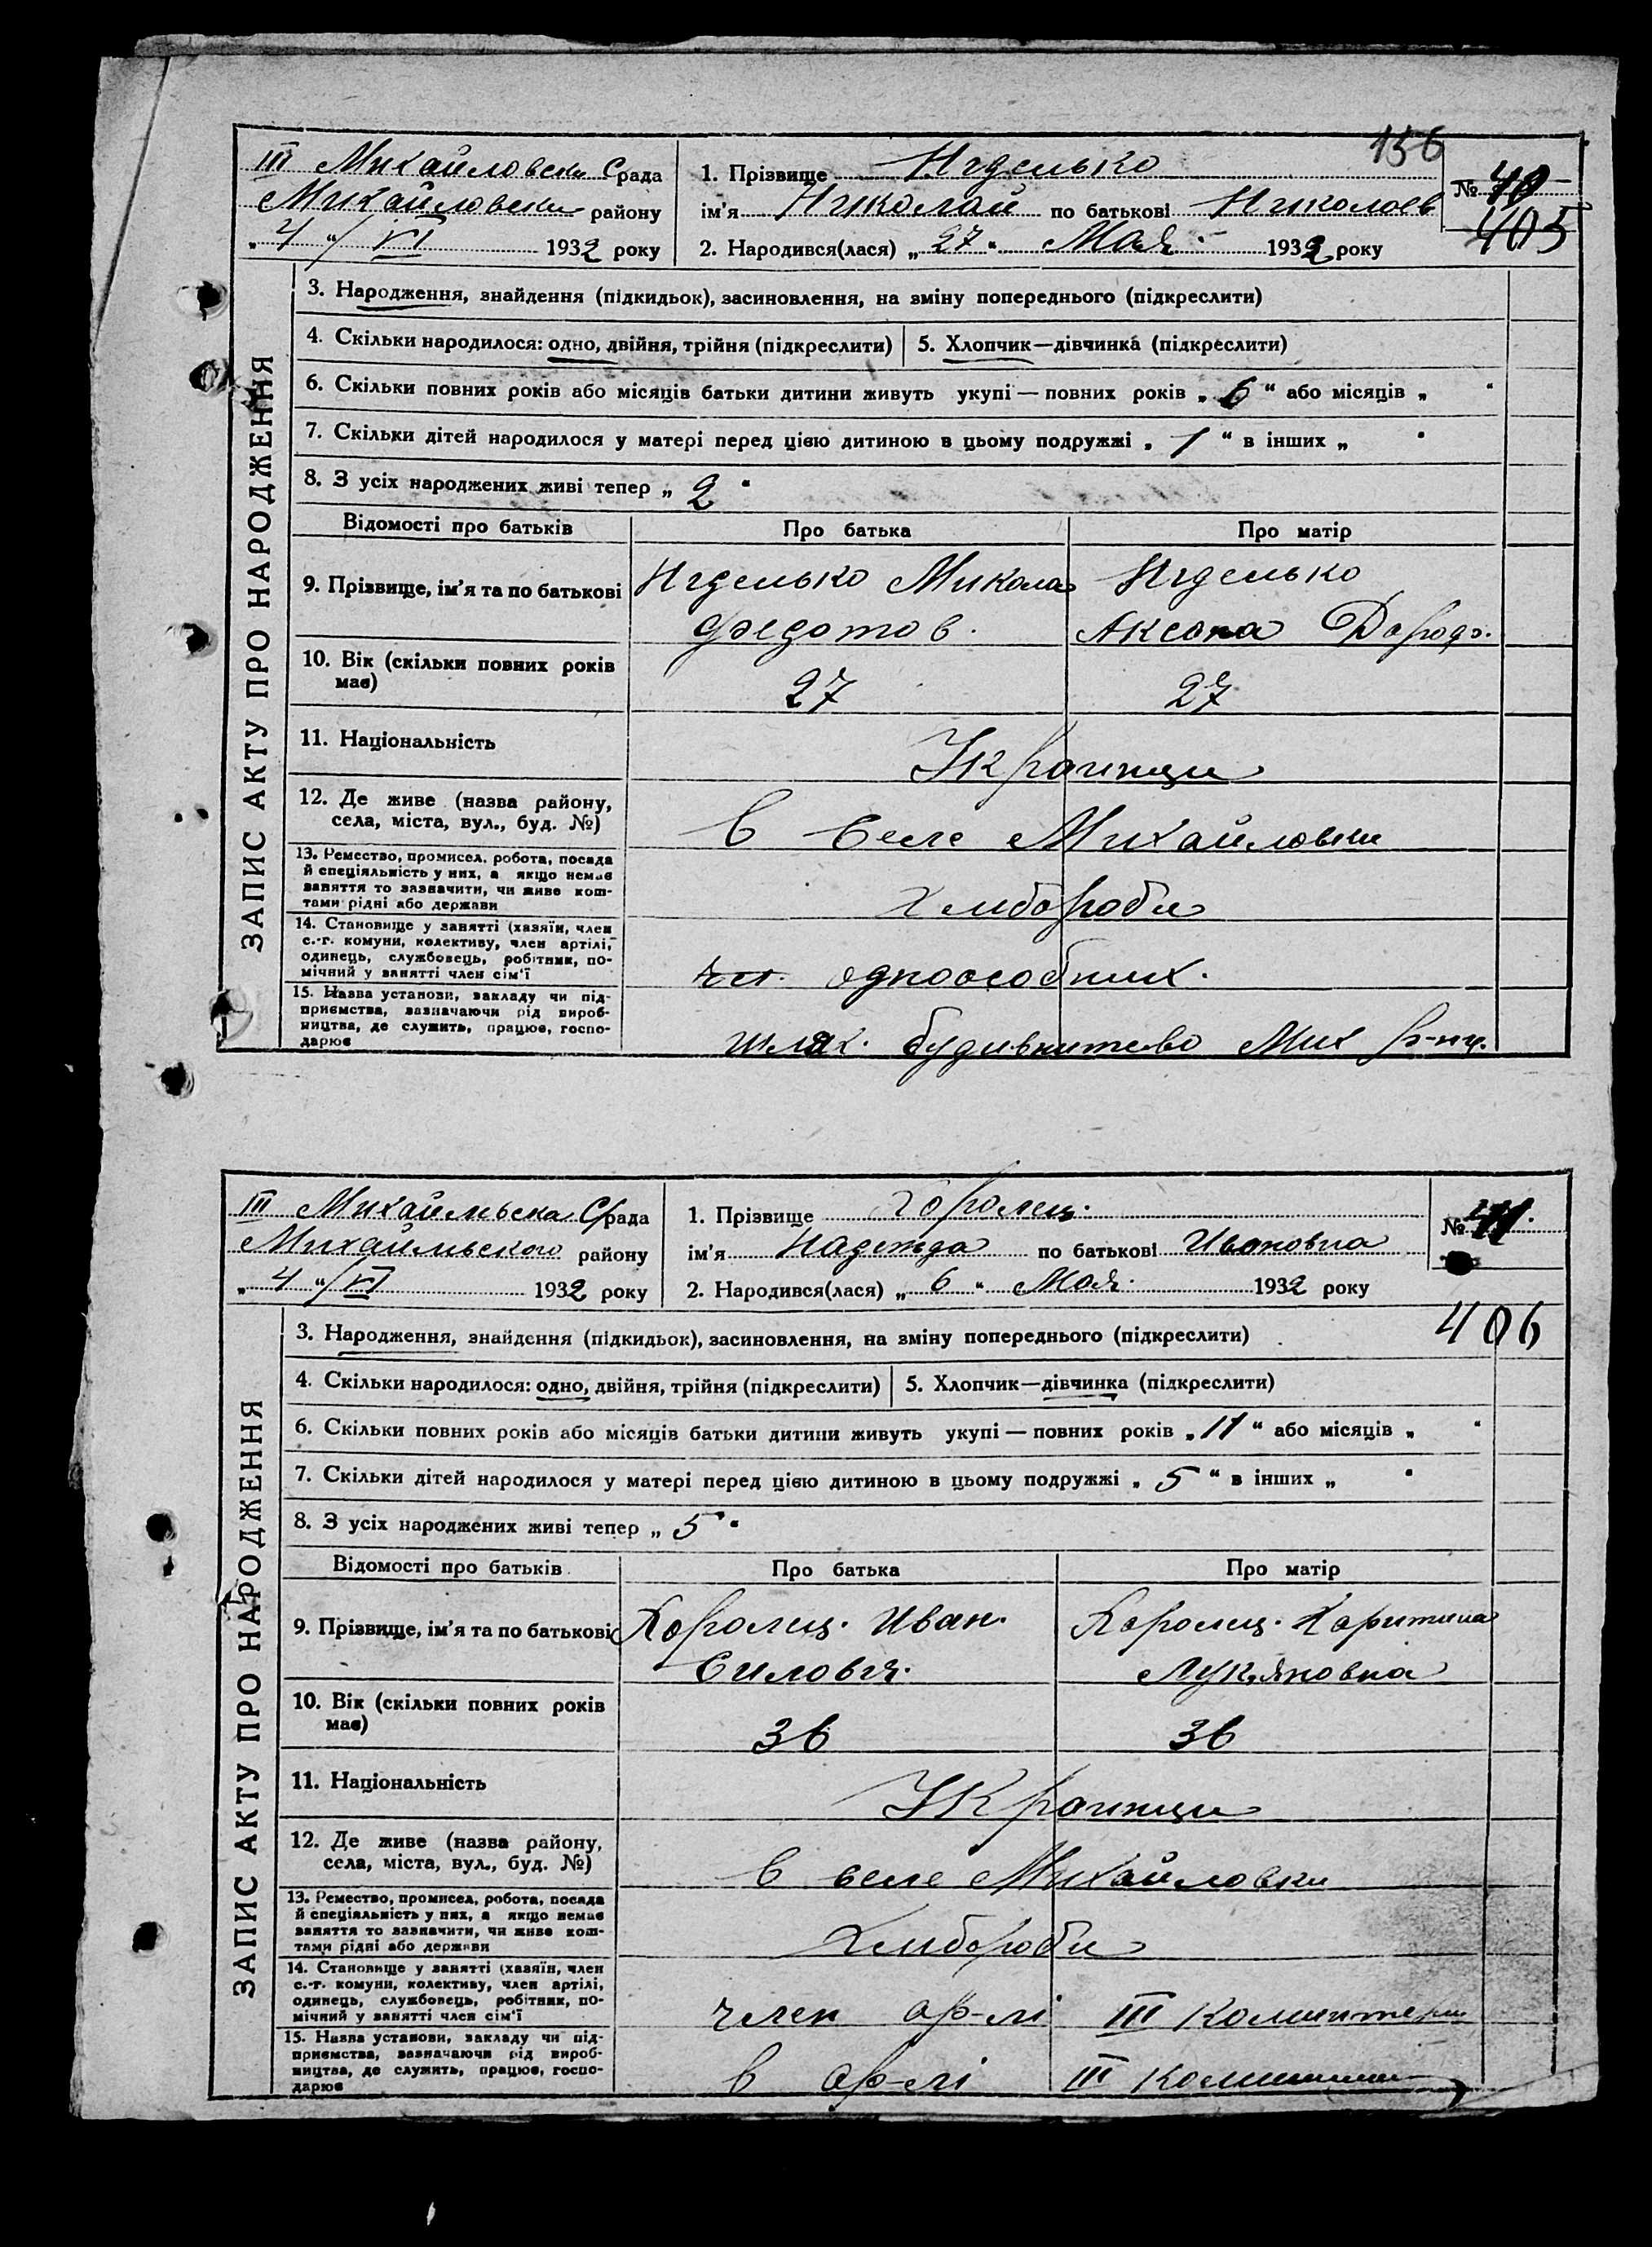 156
ЗАПИС АКТУ ПРО НАРОДЖЕННЯ
III Михайловски Срада
Михайловски району
„ 4 “ / VI 1932 року
1. Прізвище Нідєлько
ім'я Николай по батькові Николаєв
2. Народився(лася) „ 27 “ Мая 1932 року
№ 40
405
3. Народження, знайдення (підкидьок), засиновлення, на зміну попереднього (підкреслити)
4. Скільки народилося: одно, двійня, трійня (підкреслити) 5. Хлопчик—дівчинка (підкреслити)
6. Скільки повних років або місяців батьки дитини живуть укупі — повних років „ 6 “ або місяців „ “
7. Скільки дітей народилося у матері перед цією дитиною в цьому подружжі „ 1 “ в інших „ “
8. З усіх народжених живі тепер „ 2 “
Відомості про батьків Про батька Про матір
9. Прізвище, ім'я та по батькові Нідєлько Микола Нідєлько
Федотов. Аксена
10. Вік (скільки повних років має) 27 27
11. Національність Українци
12. Де живе (назва району, села, міста, вул., буд. №) в селе Михайловки
13. Ремество, промисел, робота, посада й спеціяльність у них, а якщо немає заняття то зазначити, чи живе коштами рідні або держави Хлибороби
14. Становище у занятті (хазяїн, член с.-г. комуни, колективу, член артілі, одинець, службовець, робітник, помічний у занятті член сім'ї одноособник.
15. Назва установи, закладу чи підприємства, зазначаючи рід виробництва, де служить, працює, господарює шлях. будивництво Мих р-ну.
ЗАПИС АКТУ ПРО НАРОДЖЕННЯ
III Михайлівска Срада
Михайлівского району
„ 4 “ / VI 1932 року
1. Прізвище Королец.
ім'я Надежда по батькові Ивановна
2. Народився(лася) „ 6 “ Мая. 1932 року
№ 41.
406
3. Народження, знайдення (підкидьок), засиновлення, на зміну попереднього (підкреслити)
4. Скільки народилося: одно, двійня, трійня (підкреслити) 5. Хлопчик—дівчинка (підкреслити)
6. Скільки повних років або місяців батьки дитини живуть укупі — повних років „ 11 “ або місяців „ “
7. Скільки дітей народилося у матері перед цією дитиною в цьому подружжі „ 5 “ в інших „ “
8. З усіх народжених живі тепер „ 5 “
Відомості про батьків Про батька Про матір
9. Прізвище, ім'я та по батькові Королец. Иван. Королец. Харитина
Силович. Лукяновна
10. Вік (скільки повних років має) 36 36
11. Національність Українци
12. Де живе (назва району, села, міста, вул., буд. №) в селе Михайловки
13. Ремество, промисел, робота, посада й спеціяльність у них, а якщо немає заняття то зазначити, чи живе коштами рідні або держави Хлибороби
14. Становище у занятті (хазяїн, член с.-г. комуни, колективу, член артілі, одинець, службовець, робітник, помічний у занятті член сім'ї член ар-лі III Коминтерн
15. Назва установи, закладу чи підприємства, зазначаючи рід виробництва, де служить, працює, господарює в ар-лі III